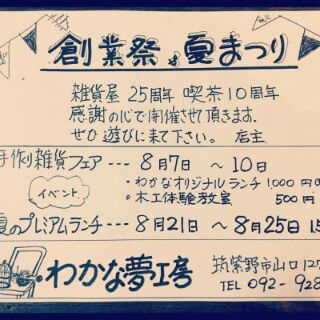 創業祭 夏まつり
雑貨屋 25周年 喫茶10周年
感謝の心で開催させ頂きます。
ぜひ 遊びに来て下さい。 店主
手作り雑貨フェア --- 8月7日 ～10日
イベント
・わかなオリジナルランチ 1000円
・木工体験教室 500円
夏のプレミアムランチ --- 8月21日 ～ 8月25日
わかな夢工房
筑紫野市山口127
TEL 092-928